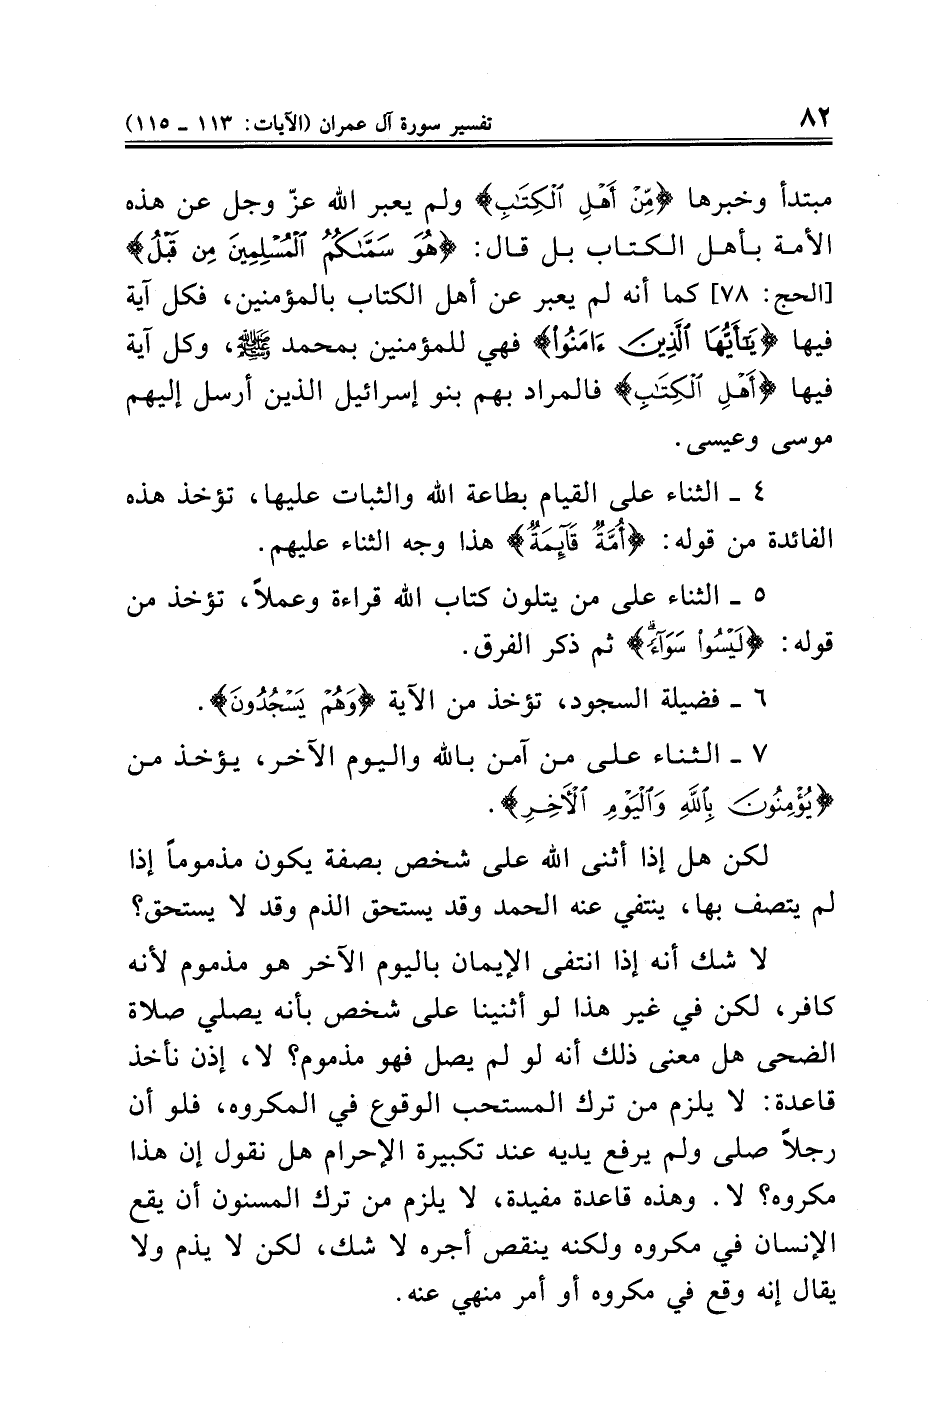 ٨٢
تفسير سورة آل عمران (الآيات: ١١٣ ـ ١١٥)
مبتدأ وخبرها ﴿مِّنْ أَهْلِ ٱلْكِتَٰبِ﴾ ولم يعبر الله عزّ وجل عن هذه
الأمة بأهل الكتاب بل قال: ﴿هُوَ سَمَّىٰكُمُ ٱلْمُسْلِمِينَ مِن قَبْلُ﴾
[الحج: ٧٨] كما أنه لم يعبر عن أهل الكتاب بالمؤمنين، فكل آية
فيها ﴿يَٰٓأَيُّهَا ٱلَّذِينَ ءَامَنُوا۟﴾ فهي للمؤمنين بمحمد ﷺ، وكل آية
فيها ﴿أَهْلِ ٱلْكِتَٰبِ﴾ فالمراد بهم بنو إسرائيل الذين أرسل إليهم
موسى وعيسى.
٤ ـ الثناء على القيام بطاعة الله والثبات عليها، تؤخذ هذه
الفائدة من قوله: ﴿أُمَّةٌ قَآئِمَةٌ﴾ هذا وجه الثناء عليهم.
٥ ـ الثناء على من يتلون كتاب الله قراءة وعملاً، تؤخذ من
قوله: ﴿لَيْسُوا۟ سَوَآءً ۗ﴾ ثم ذكر الفرق.
٦ ـ فضيلة السجود، تؤخذ من الآية ﴿وَهُمْ يَسْجُدُونَ﴾.
٧ ـ الثناء على من آمن بالله واليوم الآخر، يؤخذ من
﴿يُؤْمِنُونَ بِٱللَّهِ وَٱلْيَوْمِ ٱلْأَخِرِ﴾.
لكن هل إذا أثنى الله على شخص بصفة يكون مذموماً إذا
لم يتصف بها، ينتفي عنه الحمد وقد يستحق الذم وقد لا يستحق؟
لا شك أنه إذا انتفى الإيمان باليوم الآخر هو مذموم لأنه
كافر، لكن في غير هذا لو أثنينا على شخص بأنه يصلي صلاة
الضحى هل معنى ذلك أنه لو لم يصل فهو مذموم؟ لا، إذن نأخذ
قاعدة: لا يلزم من ترك المستحب الوقوع في المكروه، فلو أن
رجلاً صلى ولم يرفع يديه عند تكبيرة الإحرام هل نقول إن هذا
مكروه؟ لا. وهذه قاعدة مفيدة، لا يلزم من ترك المسنون أن يقع
الإنسان في مكروه ولكنه ينقص أجره لا شك، لكن لا يذم ولا
يقال إنه وقع في مكروه أو أمر منهي عنه.